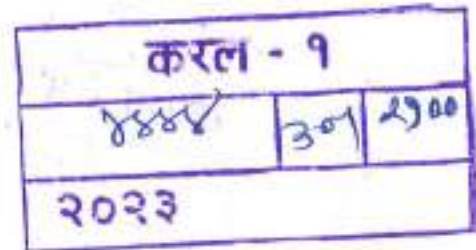 करल - १
४४४४ ३०१ २१००
२०२३